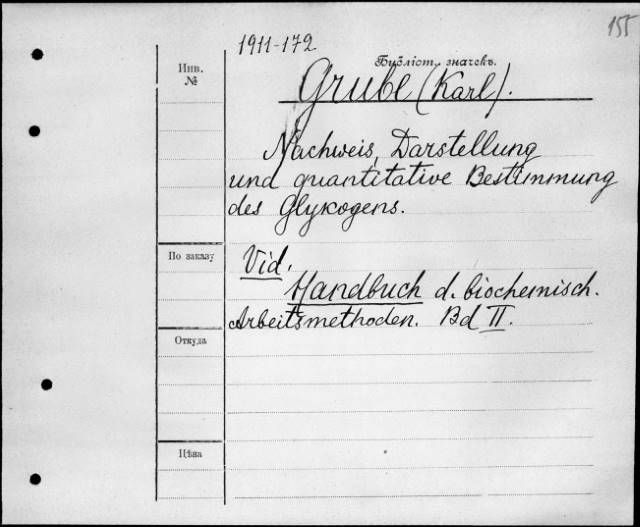 155
1911-172
Библіот. значекъ.
Инв.
№
Grube (Karl).
Nachweis, Darstellung
und quantitative Bestimmung
des Glykogens.
По заказу
Vid.
Handbuch d. biochemisch.
Arbeitsmethoden. Bd II.
Откуда
Цѣна